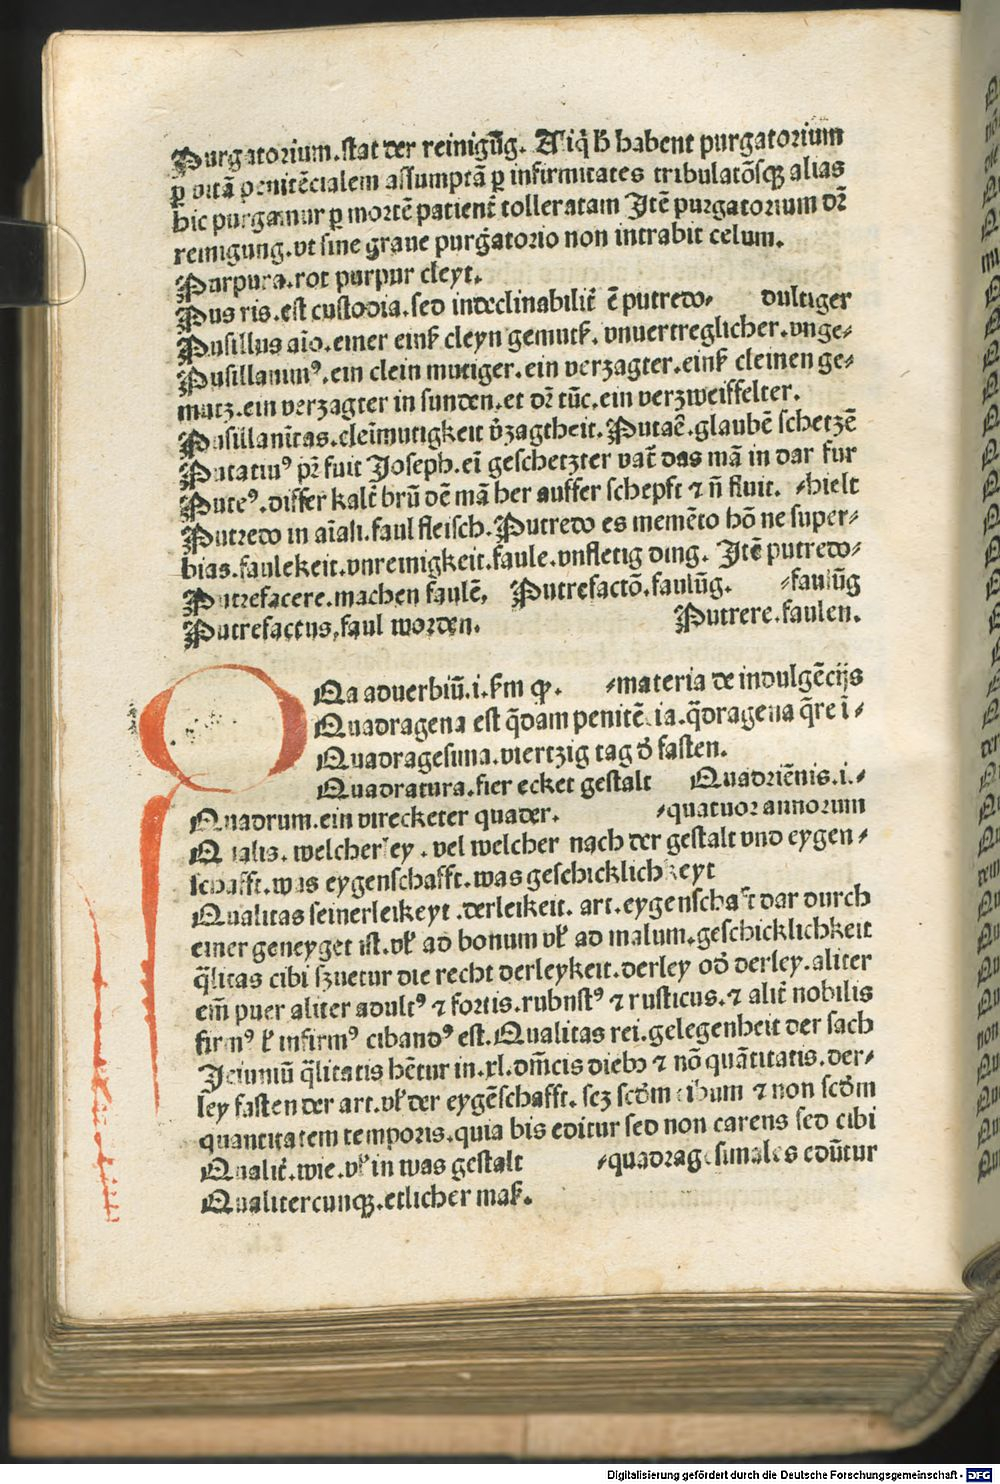 Purgatorium.stat der reinigūg. Aliq̄ h̄ habent purgatorium
ꝑ vitā penitēcialem assumptā ꝑ infirmitates tribulatōsqꝫ alias
hic purgamur ꝑ mortē patient̄ tolleratam Itē purgatorium dr̄
reinigung.vt sine graue purgatorio non intrabit celum.
Purpura.rot purpur cleyt.
Pus ris.est custodia.sed indeclinabilit̄ ē putredo⸗ dultiger
Pusillus aīo.einer einꝭ cleyn gemutꝭ.vnuertreglicher.vnge⸗
Pusillanimꝰ.ein clein mutiger.ein verzagter.einꝭ cleinen ge⸗
mutz.ein verzagter in sunden.et dr̄ tūc.ein verzweiffelter.
Pusillanītas.cleīmutigkeit v̄zagtheit.Putaē.glaubē schetzē
Putatiuꝰ pr̄ fuit Joseph.eī geschetzter vat̄ das mā in dar fur
Puteꝰ.differ kalt̄ brū dē mā her ausser schepft ⁊ n̄ fluit. ⸗hielt
Putredo in aīali.faul fleisch.Putredo es memēto hō ne super⸗
bias.faulekeit.vnreinigkeit.faule.vnfletig ding. Itē putredo⸗
Putrefacere.machen faulē. Putrefactō.faulūg. ⸗faulūg
Putrefactus.faul worden. Putrere.faulen.
Qa aduerbiū.i.ẜm ꝙ. ⸗materia de indulgēcijs
Quadragena est q̄dam penitēcia.q̄dragena q̄re ī⸗
Quadragesima.viertzig tag d̄ fasten.
Quadratura.fier ecket gestalt Quadriēnis.i.⸗
Quadrum.ein virecketer quader. ⸗quatuor annorum
Qualis.welcherley.vel welcher nach der gestalt vnd eygen⸗
schafft.was eygenschafft.was geschicklichkeyt
Qualitas seinerleikeyt.derleikeit. art.eygenschafft dar durch
einer geneyget ist.vꝉ ad bonum vꝉ ad malum.geschicklichkeit
q̄litas cibi ẜuetur die recht derleykeit.derley od̄ derley.aliter
em̄ puer aliter adultꝰ ⁊ fortis.rubustꝰ ⁊ rusticus.⁊ alit̄ nobilis
firmꝰ ꝉ infirmꝰ cibandꝰ est.Qualitas rei.gelegenheit der sach
Jeiuniū q̄litatis hētur in.xl.dn̄icis diebꝫ ⁊ nō quātitatis.der⸗
ley fasten der art.vꝉ der eygēschafft. scꝫ scd̄m cibum ⁊ non scd̄m
quantitatem temporis.quia bis editur sed non carens sed cibi
Qualit̄.wie.vꝉ in was gestalt ⸗quadragesimales edūtur
Qualitercunqꝫ.etlicher maß.
Digitalisierung gefördert durch die Deutsche Forschungsgemeinschaft - DFG